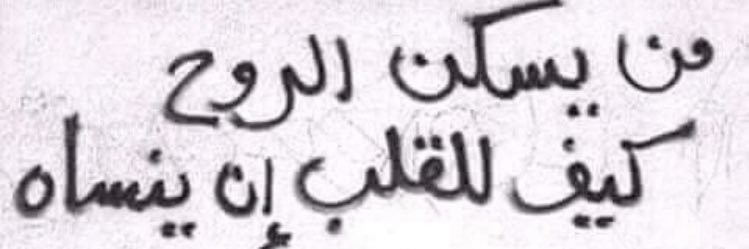 من يسكن الروح
كيف للقلب إن ينساه